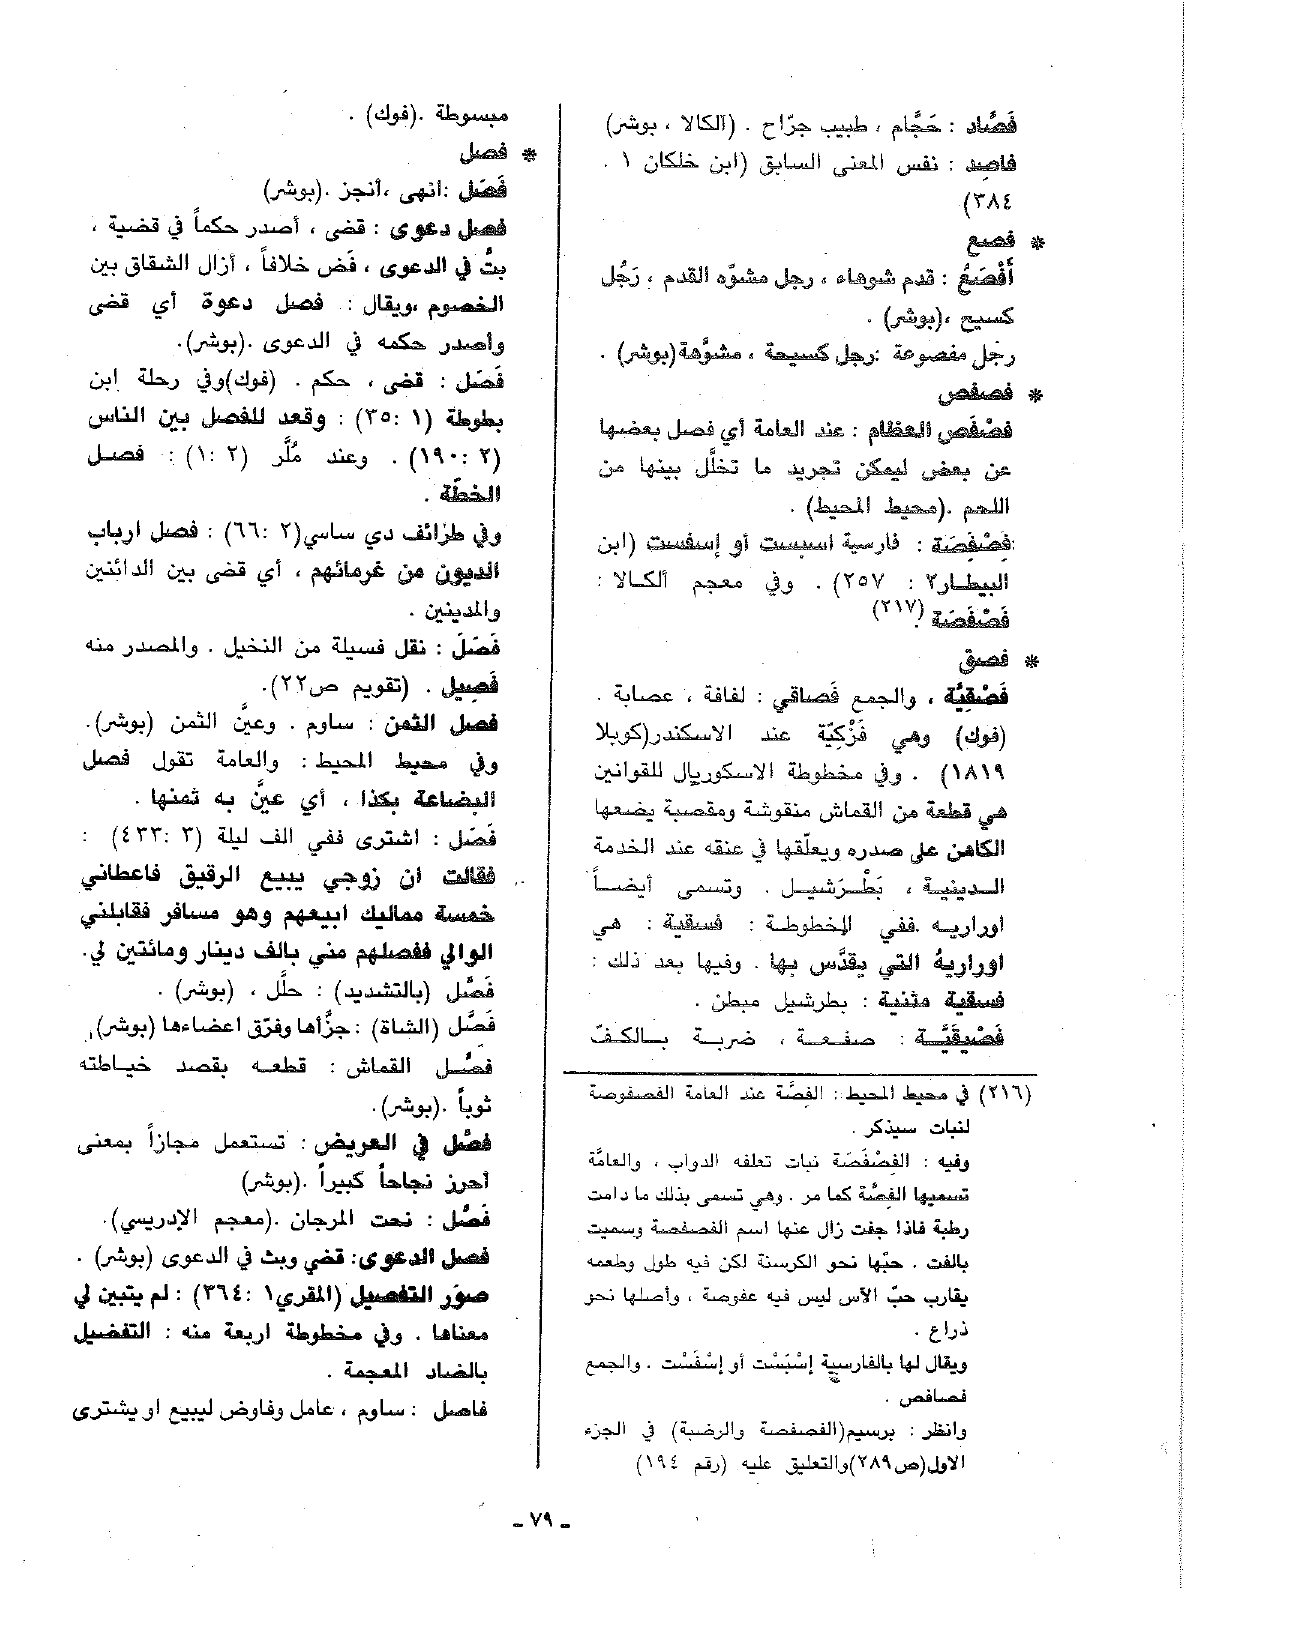 فَصَّاد : حَجَّام ، طبيب جرّاح . (ألكالا ، بوشر)
فاصِد : نفس المعنى السابق (ابن خلكان ١ .
٣٨٤)
* فصع
أَفْصَعُ : قدم شوهاء ، رجل مشوّه القدم ، رَجُل
كسيح ،(بوشر) .
رجل مفصوعة :رجل كسيحة ، مشوَّهة(بوشر) .
* فصفص
فَصْفَص العظام : عند العامة أي فصل بعضها
عن بعض ليمكن تجريد ما تخلَّل بينها من
اللحم .(محيط المحيط) .
فِصْفِصَة : فارسية اسبست أو إسفست (ابن
البيطار٢ : ٢٥٧) . وفي معجم ألكالا :
فَصْفَصَة (٢١٧)
* فصق
فَصْقِيَّة ، والجمع فَصاقي : لفافة ، عصابة .
(فوك) وهي فَزْكِيّة عند الاسكندر(كوبلا
١٨١٩) . وفي مخطوطة الاسكوريال للقوانين
هي قطعة من القماش منقوشة ومقصبة يضعها
الكاهن على صدره ويعلّقها في عنقه عند الخدمة
الدينية ، بَطْرَشيل . وتسمى أيضاً
اوراريه .ففي المخطوطة : فسقية : هي
اوراريةُ التي يقدَّس بها . وفيها بعد ذلك :
فسقية مثنية : بطرشيل مبطن .
فَصْيقَيَّة : صفعة ، ضربة بالكفّ
(٢١٦) في محيط المحيط : الفصَّة عند العامة الفصفوصة
لنبات سيذكر .
وفيه : الفِصْفَصَة نبات تعلفه الدواب ، والعامَّة
تسميها الفِصَّة كما مر . وهي تسمى بذلك ما دامت
رطبة فاذا جفت زال عنها اسم الفصفصة وسميت
بالفت . حبّها نحو الكرسنة لكن فيه طول وطعمه
يقارب حبّ الآس ليس فيه عفوصة ، وأصلها نحو
ذراع .
ويقال لها بالفارسية إسْبَسْت أو إسْفَسْت . والجمع
فصافص .
وانظر : برسيم(الفصفصة والرضبة) في الجزء
الاول(ص٢٨٩)والتعليق عليه (رقم ١٩٤)
مبسوطة .(فوك) .
* فصل
فَصَل :انهى ،أنجز .(بوشر)
فصل دعوى : قضى ، أصدر حكماً في قضية ،
بتُّ في الدعوى ، فَض خلافاً ، أزال الشقاق بين
الخصوم ،ويقال : فصل دعوة أي قضى
وأصدر حكمه في الدعوى .(بوشر).
فَصَل : قضى ، حكم . (فوك)وفي رحلة ابن
بطوطة (١ :٣٥) : وقعد للفصل بين الناس
(٢ :١٩٠) . وعند مُلَّر (٢ :١) : فصل
الخطّة .
وفي طرائف دي ساسي(٢ :٦٦) : فصل ارباب
الديون من غرمائهم ، أي قضى بين الدائنين
والمدينين .
فَصَلَ : نقل فسيلة من النخيل . والمصدر منه
فَصِيل . (تقويم ص٢٢).
فصل الثمن : ساوم . وعيَّن الثمن (بوشر).
وفي محيط المحيط : والعامة تقول فصل
البضاعة بكذا ، أي عيَّن به ثمنها .
فَصَل : اشترى ففي الف ليلة (٣ :٤٣٣) :
فقالت ان زوجي يبيع الرقيق فاعطاني
خمسة مماليك ابيعهم وهو مسافر فقابلني
الوالي ففصلهم مني بالف دينار ومائتين لي.
فَصَّل (بالتشديد) : حلَّل ، (بوشر) .
فَصَّل (الشاة) : جزَّأها وفرّق اعضاءها (بوشر).
فصَّل القماش : قطعه بقصد خياطته
ثوباً .(بوشر).
فصَّل في العريض : تستعمل مجازاً بمعنى
أحرز نجاحاً كبيراً .(بوشر)
فَصَّل : نحت المرجان .(معجم الإدريسي).
فصل الدعوى: قضي وبث في الدعوى (بوشر) .
صوَر التفصيل (المقري١ :٣٦٤) : لم يتبين لي
معناها . وفي مخطوطة اربعة منه : التفضيل
بالضاد المعجمة .
فاصل : ساوم ، عامل وفاوض ليبيع او يشترى
ـ ٧٩ ـ